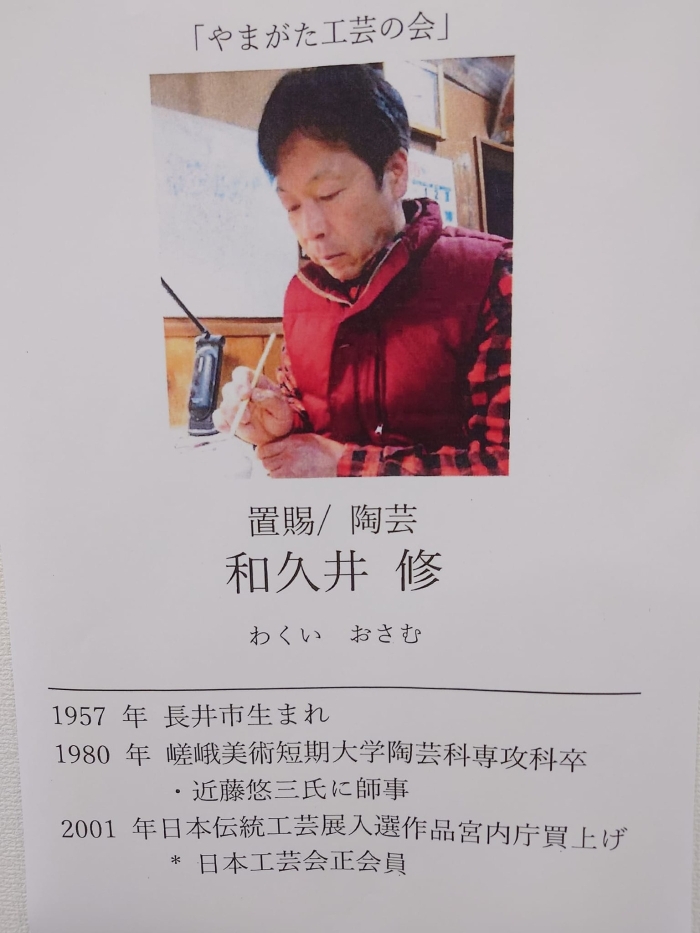 「やまがた工芸の会」
置賜/ 陶芸
和久井 修
わくい おさむ
1957 年 長井市生まれ
1980 年 嵯峨美術短期大学陶芸科専攻科卒
・近藤悠三氏に師事
2001 年日本伝統工芸展入選作品宮内庁買上げ
* 日本工芸会正会員